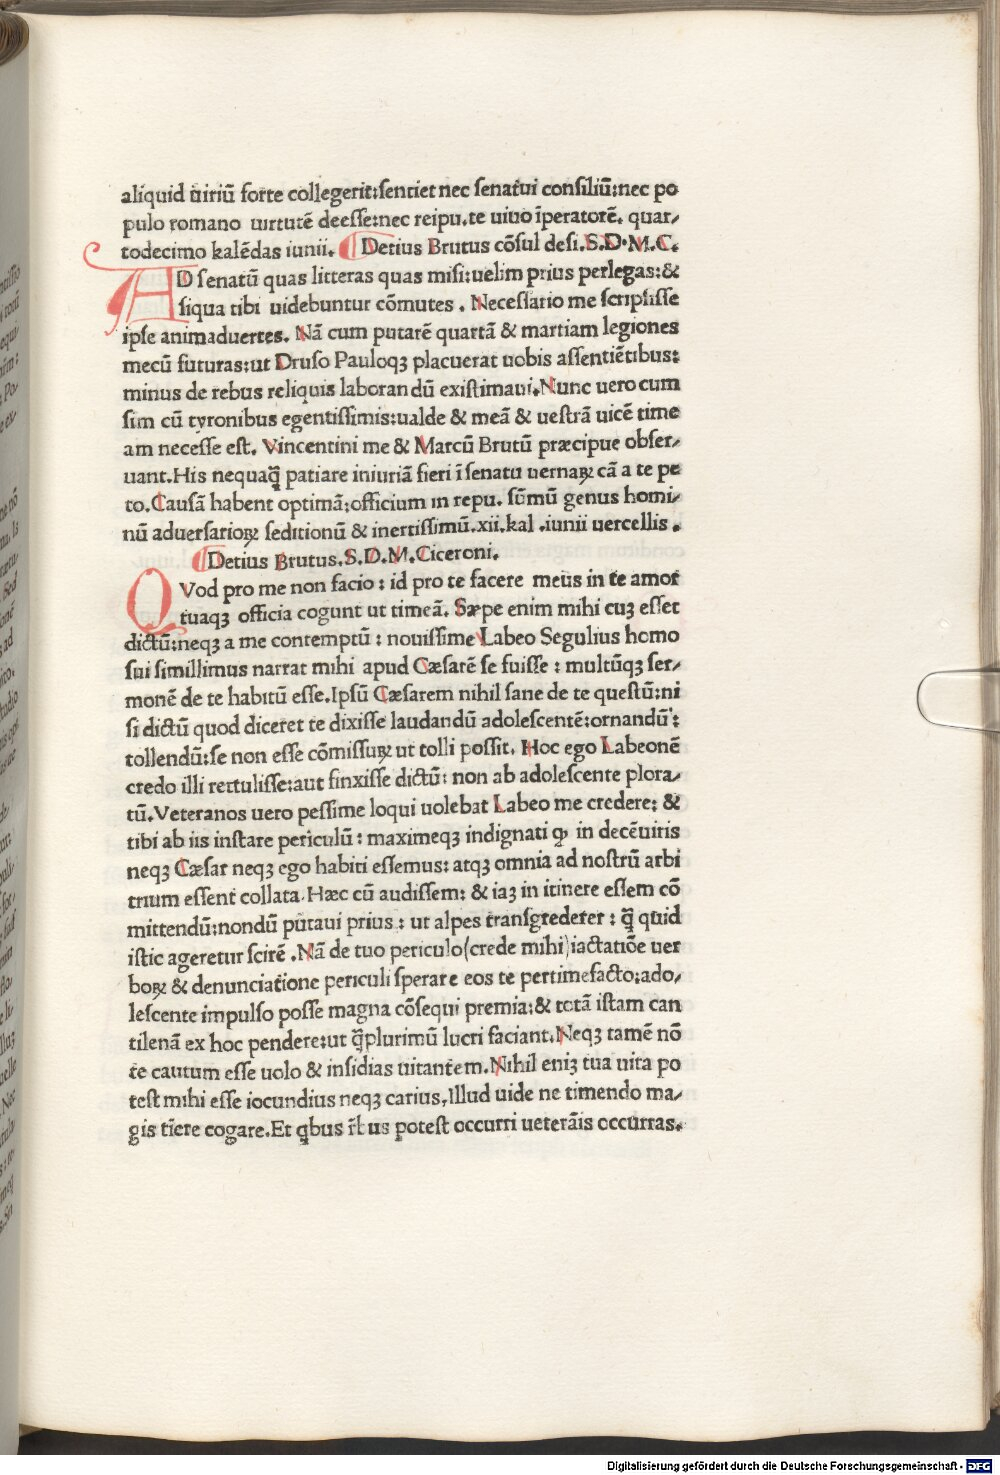 aliquid uiriū forte collegerit:sentiet nec senatui consiliū:nec po
pulo romano uirtutē deesse:nec reipu.te uiuo īperatorē. quar-
todecimo kalēdas iunii. Detius Brutus cōsul desi.S.D.M.C.
AD senatū quas litteras quas misi:uelim prius perlegas:&
siqua tibi uidebuntur cōmutes . Necessario me scripsisse
ipse animaduertes. Nā cum putarē quartā & martiam legiones
mecū futuras:ut Druso Pauloqꝫ placuerat uobis assentiētibus:
minus de rebus reliquis laborandū existimaui.Nunc uero cum
sim cū tyronibus egentissimis:ualde & meā & uestrā uicē time
am necesse est. Vincentini me & Marcū Brutū præcipue obser-
uant.His nequaq̄ patiare iniuriā fieri ī senatu uernaꝝ cā a te pe
to.Causā habent optimā:officium in repu. sūmū genus homi-
nū aduersarioꝝ seditionū & inertissimū.xii.kal .iunii uercellis .
Detius Brutus.S.D.M.Ciceroni.
QVod pro me non facio : id pro te facere meus in te amor
tuaqꝫ officia cogunt ut timeā. Sæpe enim mihi cuꝫ esset
dictū:neqꝫ a me contemptū : nouissime Labeo Segulius homo
sui simillimus narrat mihi apud Cæsarē se fuisse : multūqꝫ ser-
monē de te habitū esse.Ipsū Cæsarem nihil sane de te questū:ni
si dictū quod diceret te dixisse laudandū adolescentē:ornandū:
tollendū:se non esse cōmissuꝝ ut tolli possit. Hoc ego Labeonē
credo illi rettulisse:aut finxisse dictū: non ab adolescente plora-
tū.Veteranos uero pessime loqui uolebat Labeo me credere: &
tibi ab iis instare periculū : maximeqꝫ indignati ꝙ in decēuiris
neqꝫ Cæsar neqꝫ ego habiti essemus: atqꝫ omnia ad nostrū arbi
trium essent collata.Hæc cū audissem: & iaꝫ in itinere essem cō
mittendū:nondū putaui prius : ut alpes transgrederer : q̄ quid
istic ageretur scirē .Nā de tuo periculo(crede mihi)iactatiōe uer
boꝝ & denunciatione periculi sperare eos te pertimefacto:ado-
lescente impulso posse magna cōsequi premia:& totā istam can
tilenā ex hoc pendere:ut q̄plurimū lucri faciant.Neqꝫ tamē nō
te cautum esse uolo & insidias uitantem.Nihil eniꝫ tua uita po
test mihi esse iocundius neqꝫ carius.Illud uide ne timendo ma-
gis tīere cogare.Et qbus rƀus potest occurri ueterāis occurras.
Digitalisierung gefördert durch die Deutsche Forschungsgemeinschaft - DFG